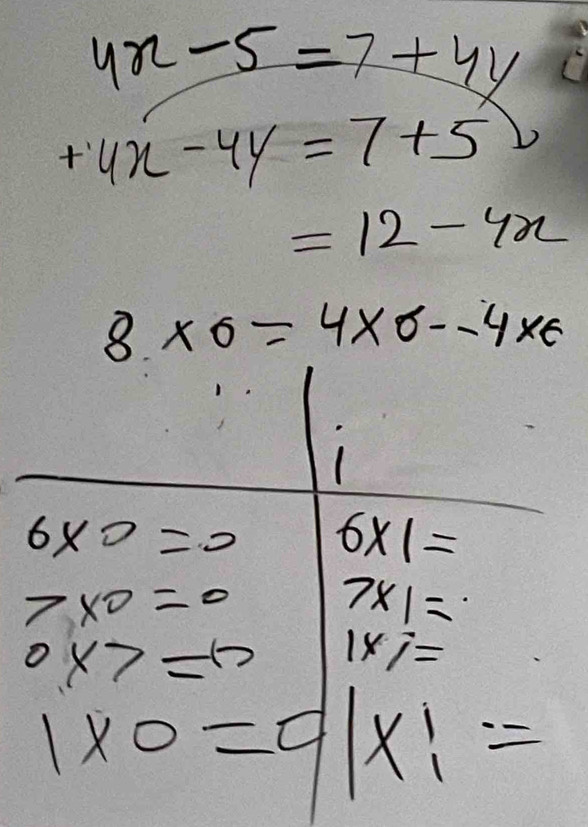 4x - 5 = 7 + 4y
+4x - 4y = 7 + 5
= 12 - 4x
8 × 6 = 4 × 6 - -4 × 6
i
6 × 0 = 0
6 × 1 =
7 × 0 = 0
7 × 1 =
0 × 7 = 0
1 × 7 =
1 × 0 = 0
1 × 1 =